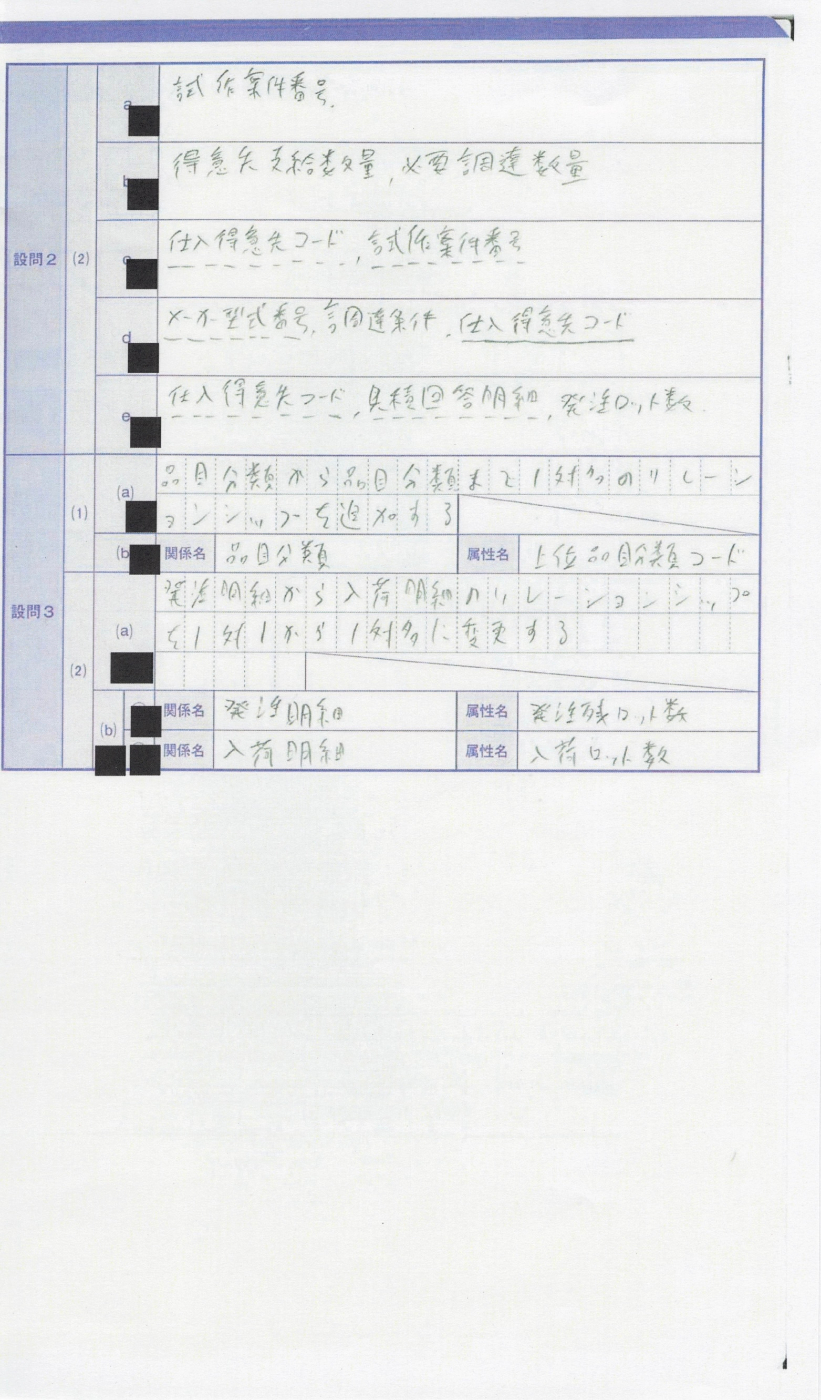 設問2
(2)
a 試作案件番号
b 得意先支給数量, 必要調達数量
c 仕入得意先コード, 試作案件番号
d メーカー型式番号, 調達条件, 仕入得意先コード
e 仕入得意先コード, 見積回答明細, 発注ロット数
設問3
(1)
(a) 品目分類から品目分類まで1対多のリレーシ
ョンシップを追加する
(b 関係名 品目分類 属性名 上位品目分類コード
(2)
(a) 発注明細から入荷明細のリレーションシップ
を1対1から1対多に変更する
(b) 関係名 発注明細 属性名 発注残ロット数
関係名 入荷明細 属性名 入荷ロット数